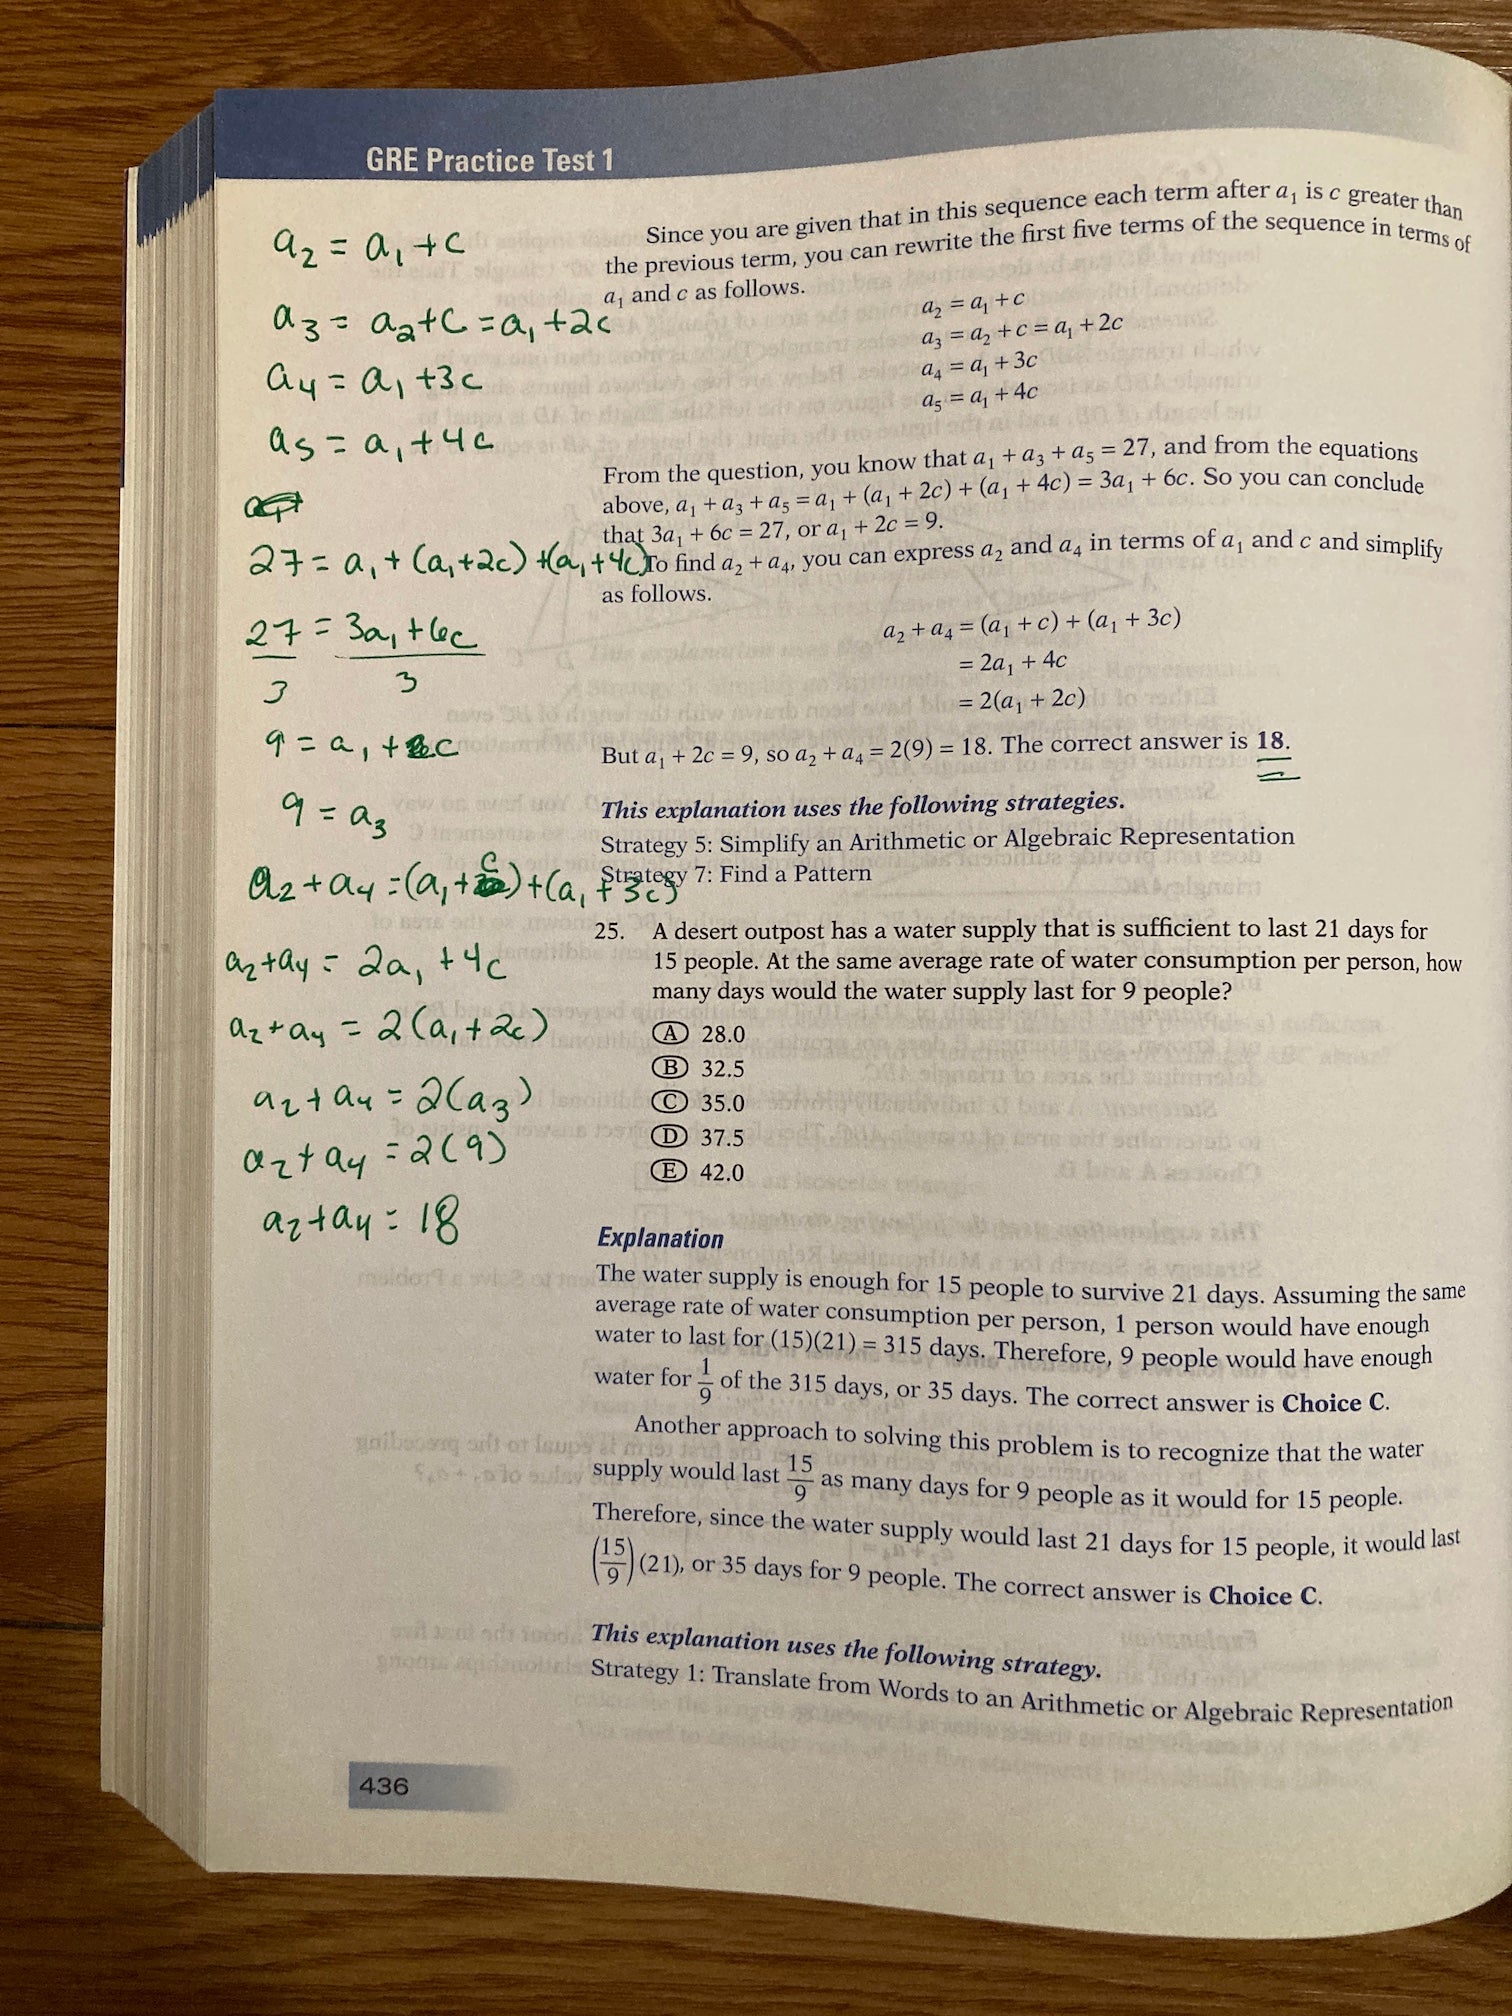 GRE Practice Test 1
a₂ = a₁ + c
a₃ = a₂ + c = a₁ + 2c
a₄ = a₁ + 3c
a₅ = a₁ + 4c
27 = a₁ + (a₁ + 2c) + (a₁ + 4c)
27 = 3a₁ + 6c
3 3
9 = a₁ + 2c
9 = a₃
a₂ + a₄ = (a₁ + c) + (a₁ + 3c)
a₂ + a₄ = 2a₁ + 4c
a₂ + a₄ = 2(a₁ + 2c)
a₂ + a₄ = 2(a₃)
a₂ + a₄ = 2(9)
a₂ + a₄ = 18
Since you are given that in this sequence each term after a₁ is c greater than
the previous term, you can rewrite the first five terms of the sequence in terms of
a₁ and c as follows.
a₂ = a₁ + c
a₃ = a₂ + c = a₁ + 2c
a₄ = a₁ + 3c
a₅ = a₁ + 4c
From the question, you know that a₁ + a₃ + a₅ = 27, and from the equations
above, a₁ + a₃ + a₅ = a₁ + (a₁ + 2c) + (a₁ + 4c) = 3a₁ + 6c. So you can conclude
that 3a₁ + 6c = 27, or a₁ + 2c = 9.
To find a₂ + a₄, you can express a₂ and a₄ in terms of a₁ and c and simplify
as follows.
a₂ + a₄ = (a₁ + c) + (a₁ + 3c)
= 2a₁ + 4c
= 2(a₁ + 2c)
But a₁ + 2c = 9, so a₂ + a₄ = 2(9) = 18. The correct answer is 18.
This explanation uses the following strategies.
Strategy 5: Simplify an Arithmetic or Algebraic Representation
Strategy 7: Find a Pattern
25. A desert outpost has a water supply that is sufficient to last 21 days for
15 people. At the same average rate of water consumption per person, how
many days would the water supply last for 9 people?
Ⓐ 28.0
Ⓑ 32.5
Ⓒ 35.0
Ⓓ 37.5
Ⓔ 42.0
Explanation
The water supply is enough for 15 people to survive 21 days. Assuming the same
average rate of water consumption per person, 1 person would have enough
water to last for (15)(21) = 315 days. Therefore, 9 people would have enough
water for 1/9 of the 315 days, or 35 days. The correct answer is Choice C.
Another approach to solving this problem is to recognize that the water
supply would last 15/9 as many days for 9 people as it would for 15 people.
Therefore, since the water supply would last 21 days for 15 people, it would last
(15/9)(21), or 35 days for 9 people. The correct answer is Choice C.
This explanation uses the following strategy.
Strategy 1: Translate from Words to an Arithmetic or Algebraic Representation
436